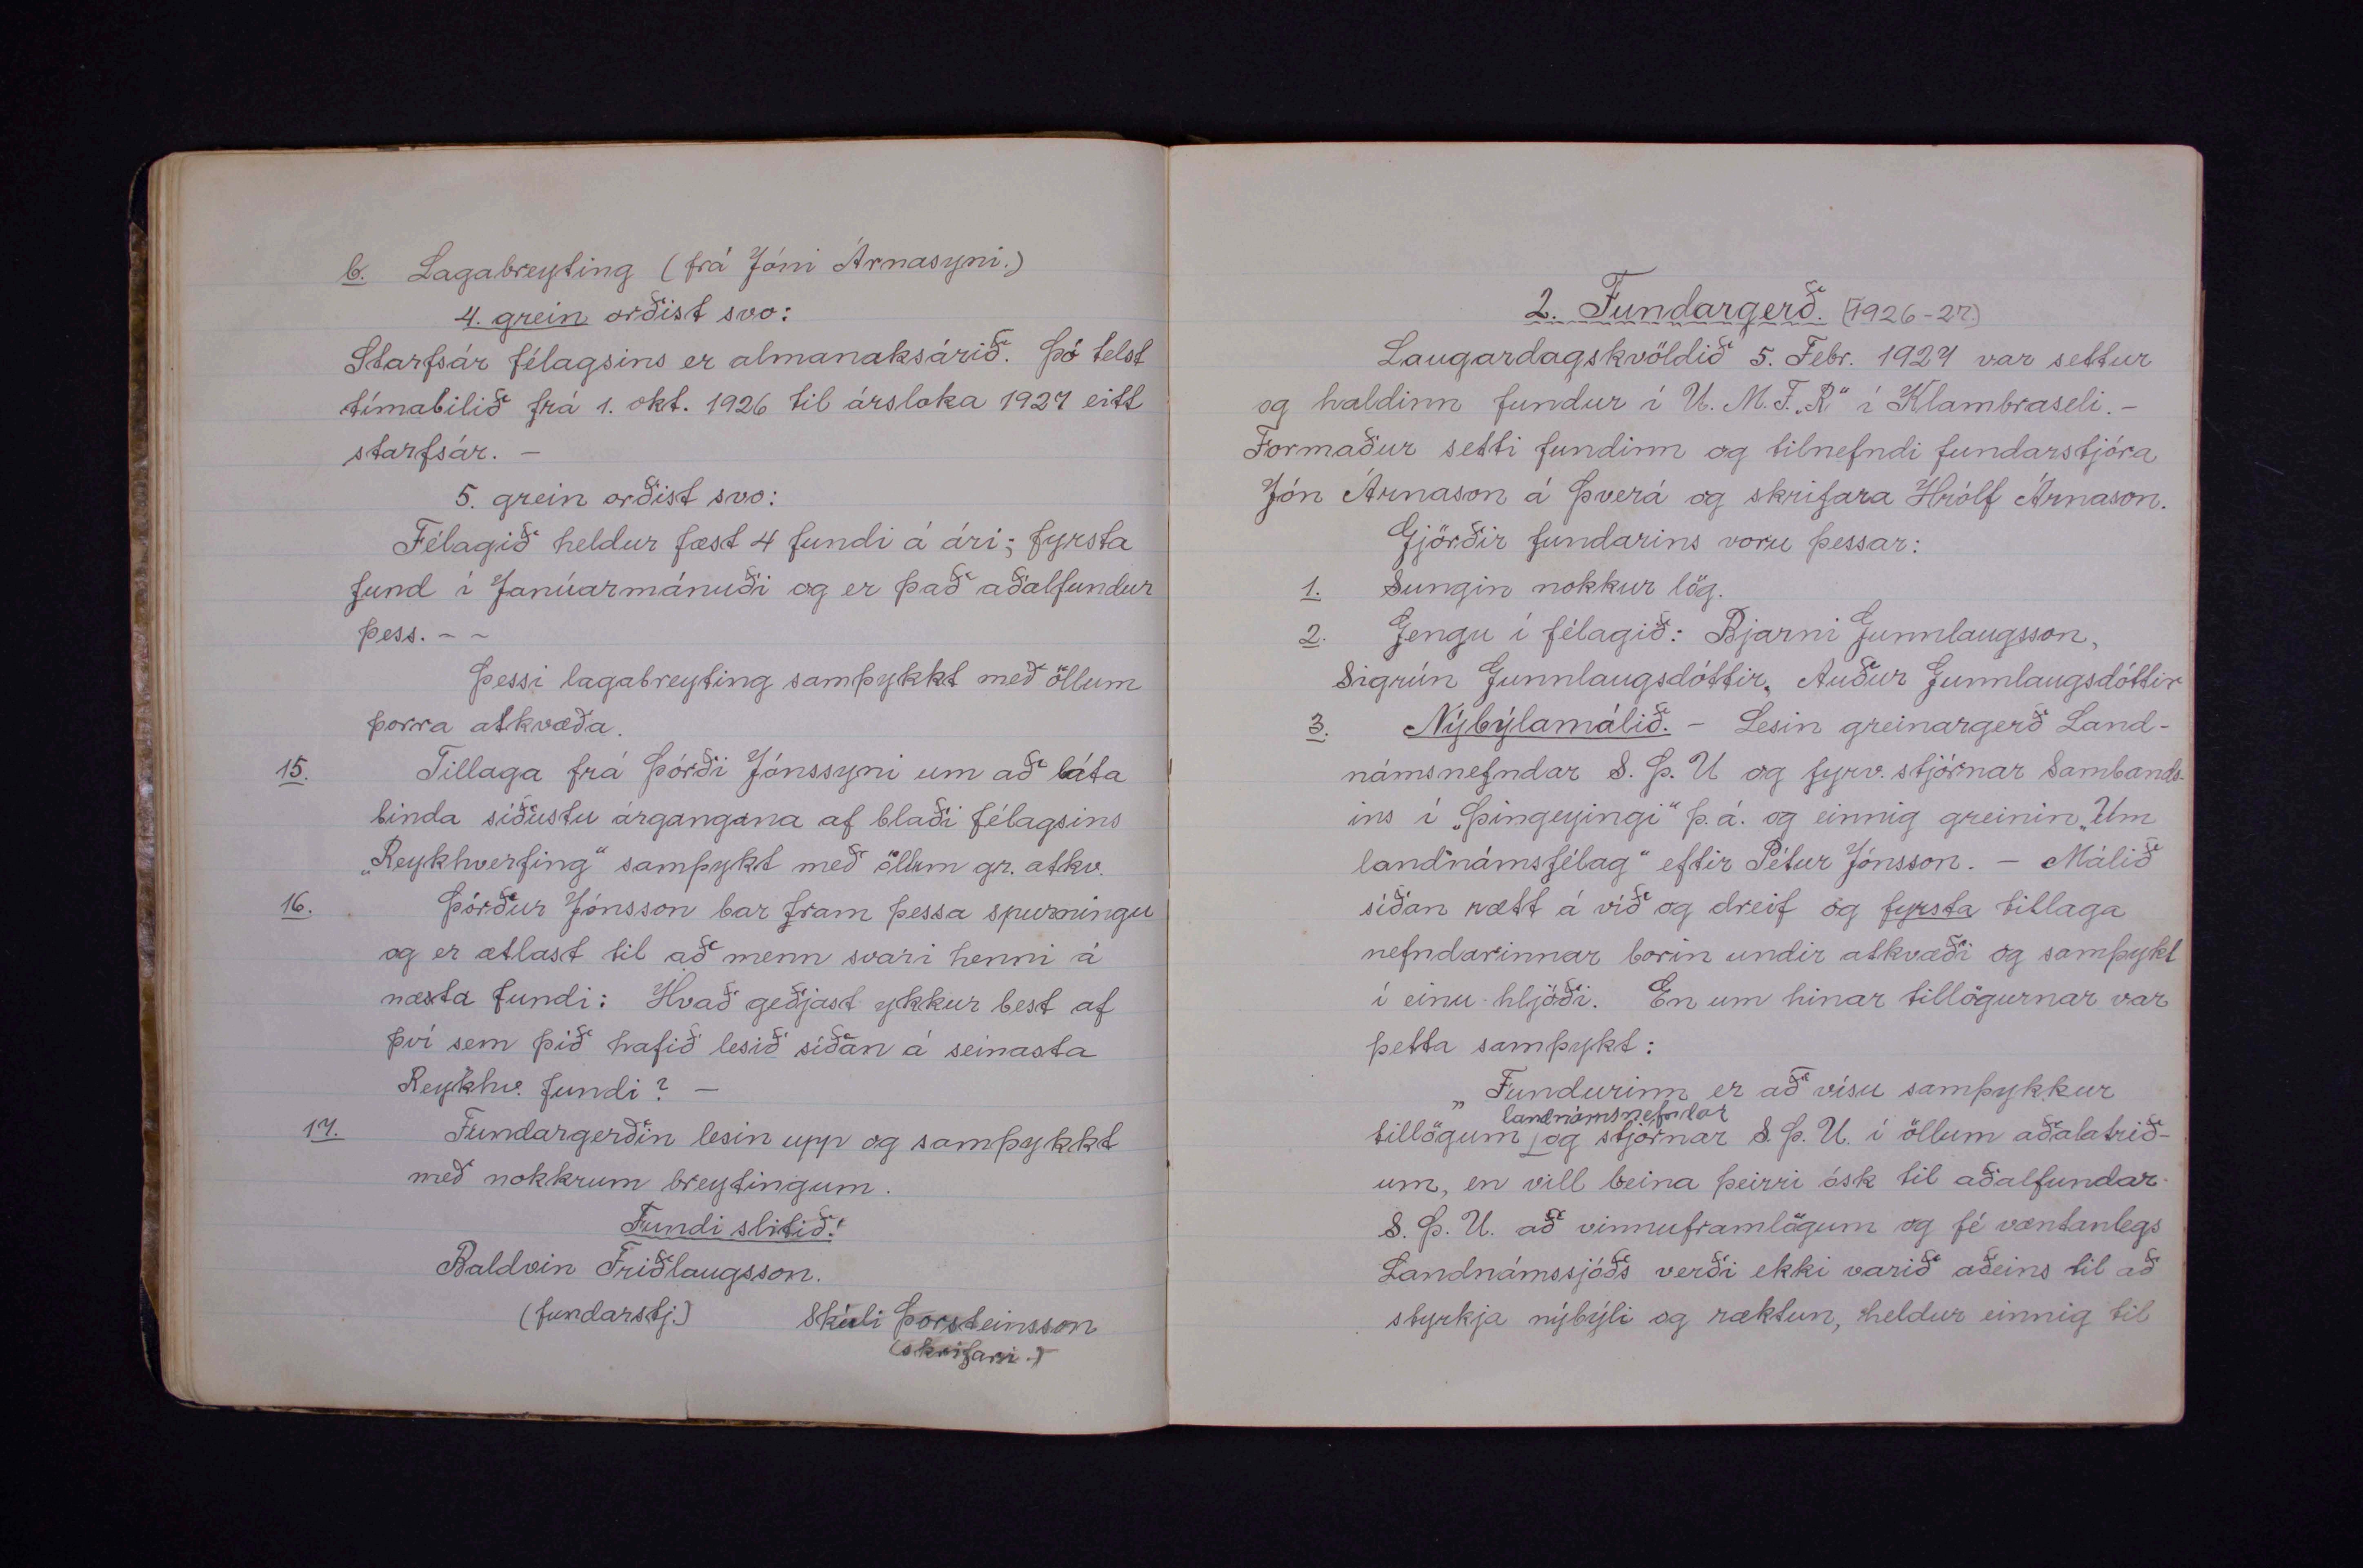 b. Lagabreyting (frá Jóni Árnasyni.)
4. grein orðist svo:
Starfsár félagsins er almanaksárið. Þó telst
tímabilið frá 1. okt. 1926 til ársloka 1927 eitt
starfsár. –
5. grein orðist svo:
Félagið heldur fæst 4 fundi á ári; fyrsta
fund í Janúarmánuði og er það aðalfundur
þess. – ~
Þessi lagabreyting samþykkt með öllum
þorra atkvæða.
15. Tillaga frá Þórði Jónssyni um að láta
binda síðustu árgangana af blaði félagsins
„Reykhverfing“ samþykt með öllum gr. atkv.
16. Þórður Jónsson bar fram þessa spurningu
og er ætlast til að menn svari henni á
næsta fundi: Hvað geðjast ykkur best af
því sem þið hafið lesið síðan á seinasta
Reykhv. fundi? –
17. Fundargerðin lesin upp og samþykkt
með nokkrum breytingum.
Fundi slitið!
Baldvin Friðlaugsson.
(fundarstj.) Skúli Þorsteinsson
(skrifari.)
2. Fundargerð. (1926-27)
Laugardagskvöldið 5. Febr. 1927 var settur
og haldinn fundur í U. M. F. „R“ í Klambraseli. –
Formaður setti fundinn og tilnefndi fundarstjóra
Jón Árnason á Þverá og skrifara Hrólf Árnason.
Gjörðir fundarins voru þessar:
1. Sungin nokkur lög.
2. Gengu í félagið: Bjarni Gunnlaugsson,
Sigrún Gunnlaugsdóttir, Auður Gunnlaugsdóttir
3. Nýbýlamálið. – Lesin greinargerð Land-
námsnefndar S. Þ. U og fyrv. stjórnar Sambands-
ins í „Þingeyingi“ þ. á. og einnig greinin „Um
landnámsfélag“ eftir Pétur Jónsson. – Málið
síðan rætt á víð og dreif og fyrsta tillaga
nefndarinnar borin undir atkvæði og samþykt
í einu hljóði. En um hinar tillögurnar var
þetta samþykt:
„Fundurinn er að vísu samþykkur
landnámsnefndar
tillögum og stjórnar S. Þ. U. í öllum aðalatrið-
um, en vill beina þeirri ósk til aðalfundar
S. Þ. U. að vinnuframlögum og fé væntanlegs
Landnámssjóðs verði ekki varið aðeins til að
styrkja nýbýli og ræktun, heldur einnig til